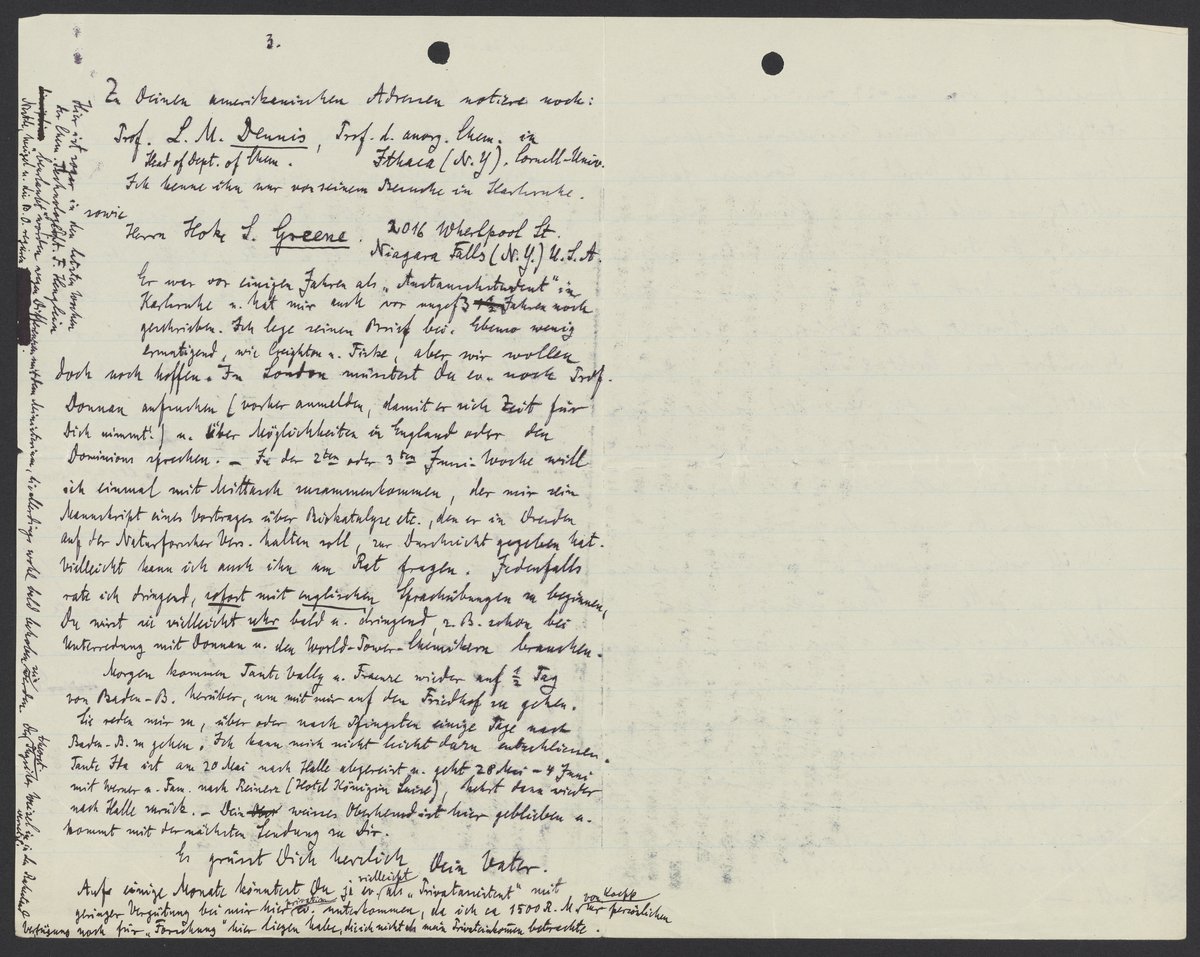 3.
Zu Deinen amerikanischen Adressen notiere noch:
Prof. L. M. Dennis, Prof. d. anorg. Chem. in
Head of Dept. of Chem. Ithaca (N.Y). Cornell-Univ.
Ich kenne ihn nur von seinem Besuche in Karlsruhe.
sowie
Herrn Hoke S. Greene. 2016 Whirlpool St.
Niagara Falls (N.Y.) U.S.A.
Er war vor einigen Jahren als „Austauschstudent" in
Karlsruhe u. hat mir auch vor ungef 3 Jahren noch
geschrieben. Ich lege seinen Brief bei. Ebenso wenig
ermutigend, wie Creighton u. Finke, aber wir wollen
doch noch hoffen. In London müsstest Du ev. noch Prof.
Donnan aufsuchen (vorher anmelden, damit er sich Zeit für
Dich nimmt!) u. über Möglichkeiten in England oder den
Dominions sprechen. – In der 2ten oder 3ten Juni-Woche will
ich einmal mit Mittasch zusammenkommen, der mir sein
Manuskript eines Vortrages über Biokatalyse etc., den er in Dresden
auf der Naturforscher Vers. halten soll, zur Durchsicht gegeben hat.
Vielleicht kann ich auch ihn um Rat fragen. Jedenfalls
rate ich dringend, sofort mit englischen Sprachübungen zu beginnen,
Du wirst sie vielleicht sehr bald u. dringend, z.B. schon bei
Unterredung mit Donnan u. den World-Power-Chemikern brauchen.
Morgen kommen Tante Vally u. Fraenze wieder auf ½ Tag
von Baden-B. herüber, um mit mir auf den Friedhof zu gehen.
Sie reden mir zu, über oder nach Pfingsten einige Tage nach
Baden-B. zu gehen. Ich kann mich nicht leicht dazu entschliessen.
Tante Ida ist am 20 Mai nach Halle abgereist u. geht 28 Mai – 4 Juni
mit Werner u. Fam. nach Reinerz (Hotel Königin Luise), kehrt dann wieder
nach Halle zurück. – Dein weisses Oberhemd ist hier geblieben u.
kommt mit der nächsten Sendung zu Dir.
Es grüsst Dich herzlich Dein Vater.
Auf einige Monate könntest Du ja ev. vielleicht als „Privatassistent" mit
geringer Vergütung bei mir hier ev. unterkommen, da ich ca 1500 R.M. zur persönlichen
Verfügung noch für „Forschung" hier liegen habe, die ich nicht als mein Privateinkommen betrachte.
Hier ist sogar in den letzten Wochen
der Chem. Technologe F. Henglein
beurlaubt worden wegen Differenzen mit dem Ministerium, die allerdings wohl bald behoben sein werden.